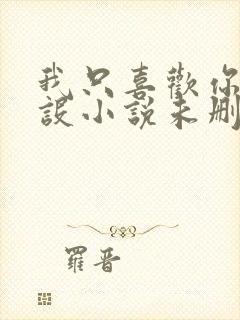 我只喜歡你
設小說未刪
羅晋